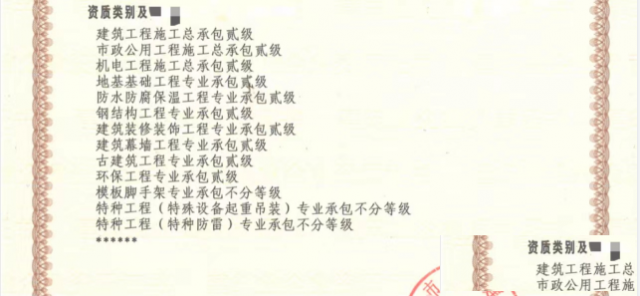 资质类别及
建筑工程施工总承包贰级
市政公用工程施工总承包贰级
机电工程施工总承包贰级
地基基础工程专业承包贰级
防水防腐保温工程专业承包贰级
钢结构工程专业承包贰级
建筑装修装饰工程专业承包贰级
建筑幕墙工程专业承包贰级
古建筑工程专业承包贰级
环保工程专业承包贰级
模板脚手架专业承包不分等级
特种工程（特殊设备起重吊装）专业承包不分等级
特种工程（特种防雷）专业承包不分等级
******
市
资质类别及
建筑工程施工总
市政公用工程施